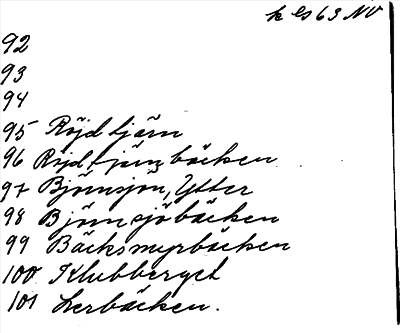 k bs 63 NV
92
93
94
95 Röjdtjärn
96 Röjdtjärnsbäcken
97 Björnsjön, Ytter
98 Björnsjöbäcken
99 Bäcksmyrbäcken
100 Klubberget
101 Lerbäcken.